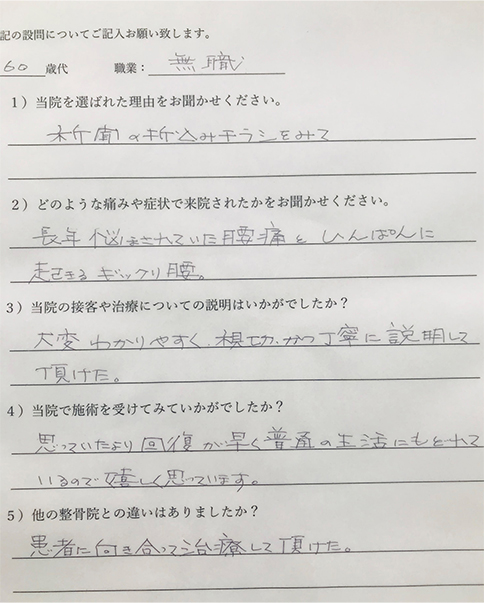 記の設問についてご記入お願い致します。
60 歳代 職業：無職
1）当院を選ばれた理由をお聞かせください。
新聞の折込みチラシをみて
2）どのような痛みや症状で来院されたかをお聞かせください。
長年悩まされていた腰痛とひんぱんに
起きるギックリ腰。
3）当院の接客や治療についての説明はいかがでしたか？
大変わかりやすく、親切かつ丁寧に説明して
頂けた。
4）当院で施術を受けてみていかがでしたか？
思っていたより回復が早く普通の生活にもどれて
いるので嬉しく思っています。
5）他の整骨院との違いはありましたか？
患者に向き合って治療して頂けた。